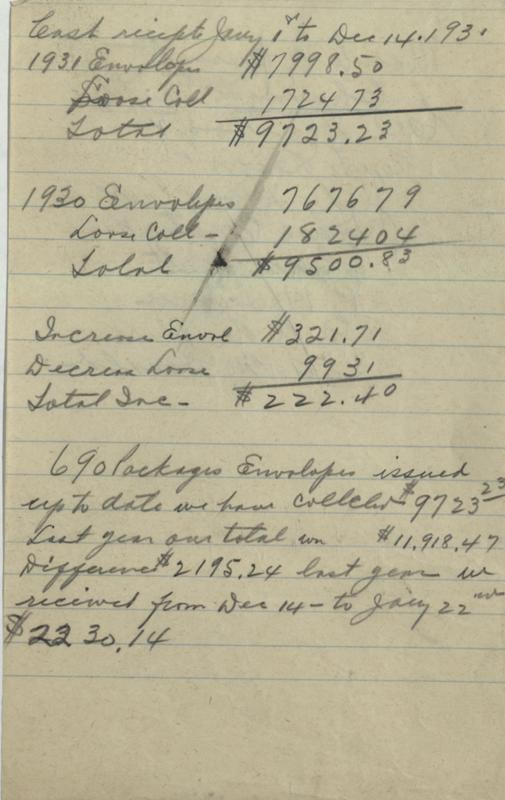 Cash recipts Jany 1st to Dec 14. 193
1931 Envelops $7998.50
Loose Coll 172473
Total $9723.23
1930 Envelopes 767679
Loose Coll - 182404
Total $9500.83
Increase Envol $321.71
Decreas Loose 9931
Total Inc - $222.40
690 Packages Envelopes issued
up to date we have collcted $9723 23
Last year our total was $11,918.47
Difference $2195.24 last year we
recived from Dec 14 - to Jany 22nd
$2230.14